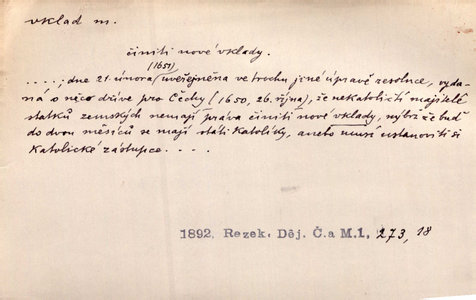 vklad m.
činiti nové vklady.
(1651)
....; dne 21. února uveřejněna ve trochu jiné úpravě resoluce, vyda-
ná o něco dříve pro Čechy (1650, 26. října), že nekatoličtí majitelé
statků zemských nemají práva činiti nové vklady, nýbrž že buď
do dvou měsíců se mají státi katolíky, anebo musí ustanoviti si
katolické zástupce. . . . .
1892. Rezek. Děj. Č. a M. 1, 273, 18